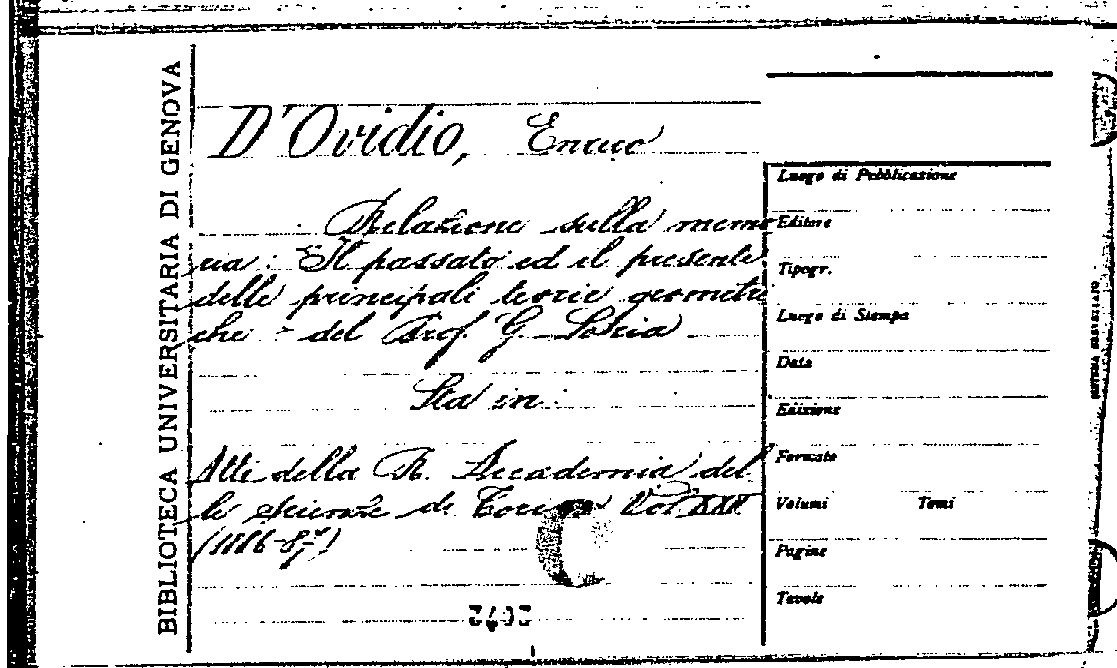 BIBLIOTECA UNIVERSITARIA DI GENOVA
D'Ovidio, Enrico
Relazione sulla memo
ria: "Il passato ed il presente
delle principali teorie geometri
che - del Prof. G. Loria
Sta in:
Atti della R. Accademia del
le scienze di Torino Vol. XXII
(1886-87)
Luogo di Pubblicazione
Editore
Tipogr.
Luogo di Stampa
Data
Edizione
Formato
Volumi Tomi
Pagine
Tavole